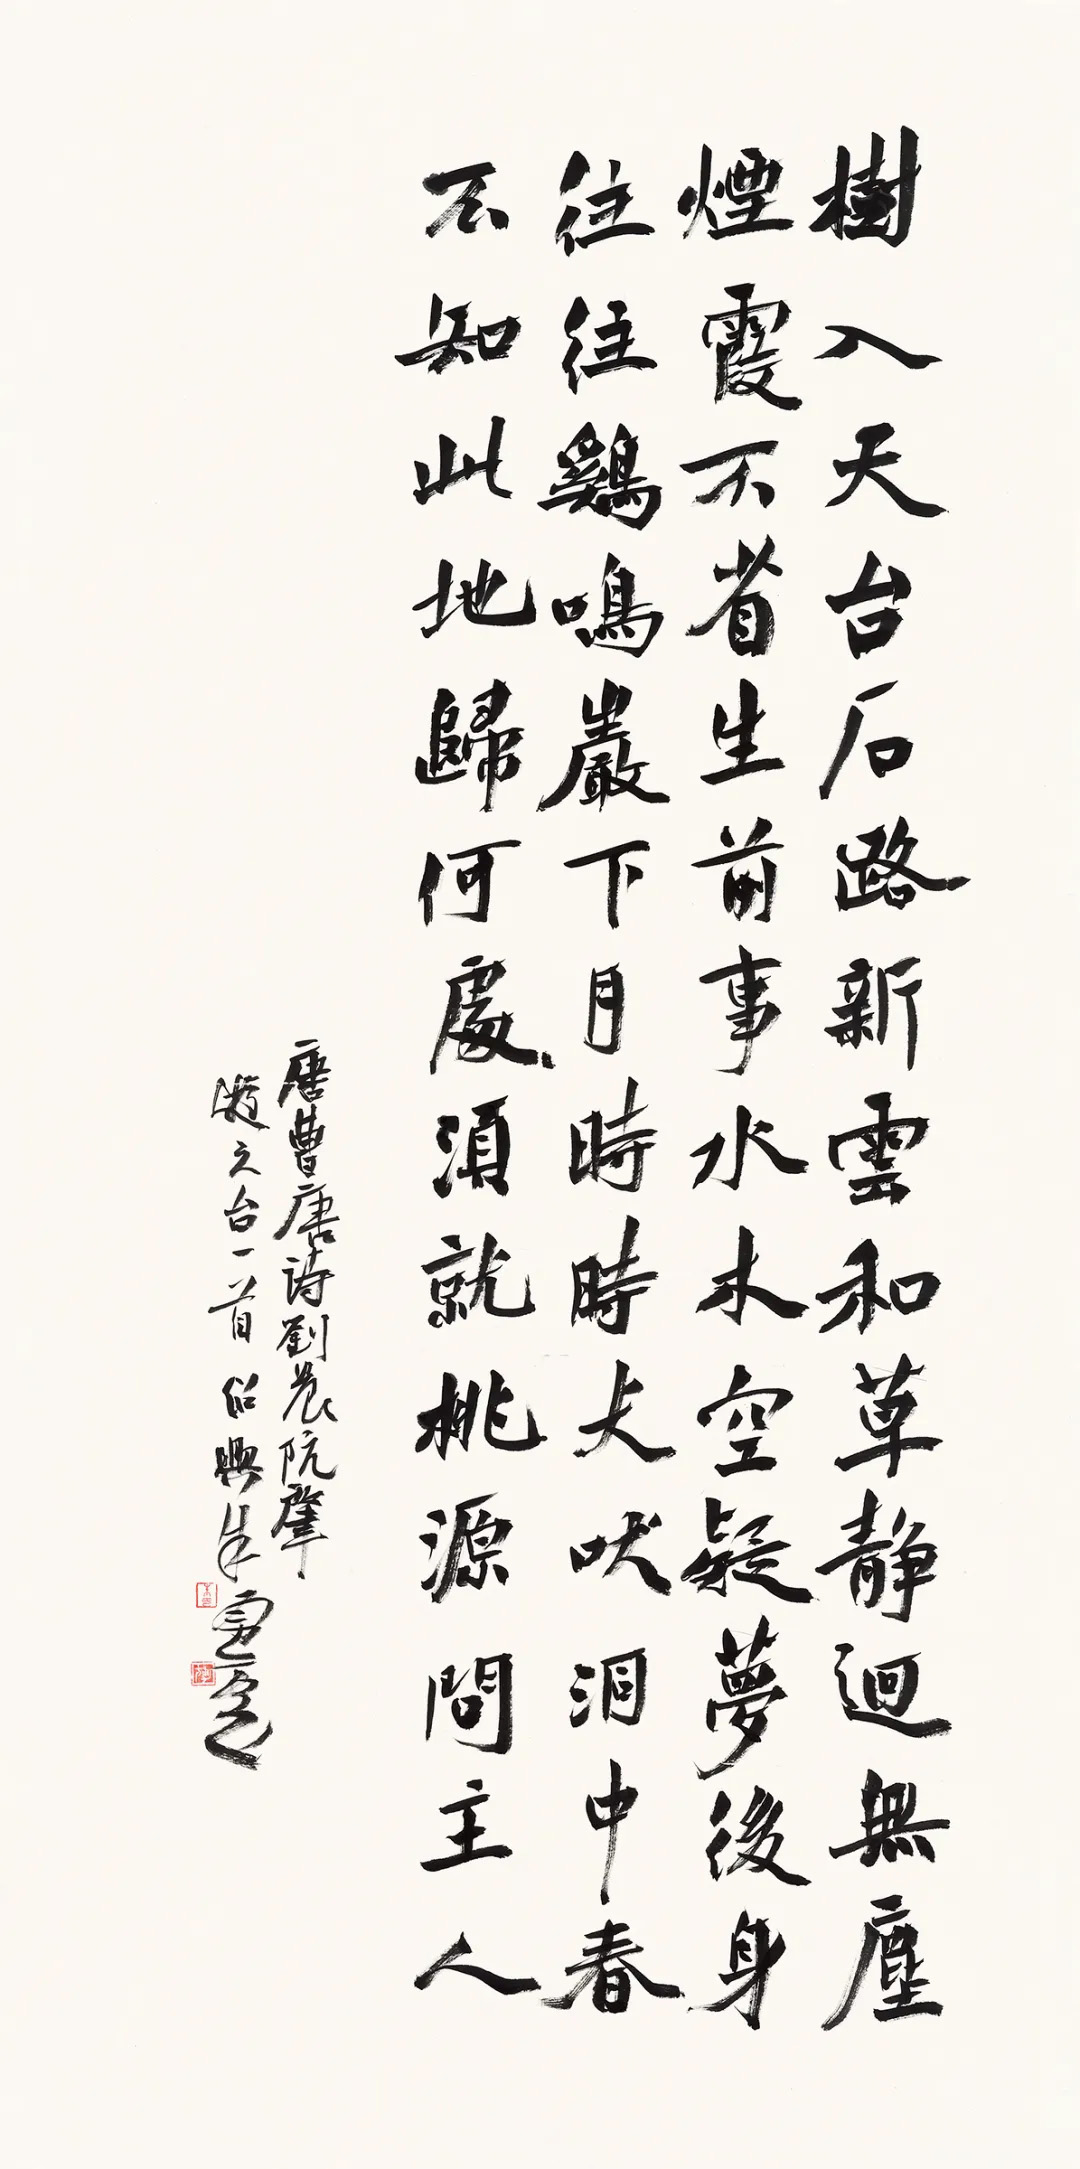 樹入天台石路新雲和草靜迥無塵
煙霞不省生前事水木空疑夢後身
往往鷄鳴巖下月時時犬吠洞中春
不知此地歸何處須就桃源問主人
唐曹唐詩劉晨阮肇
遊天台一首紹興朱勇